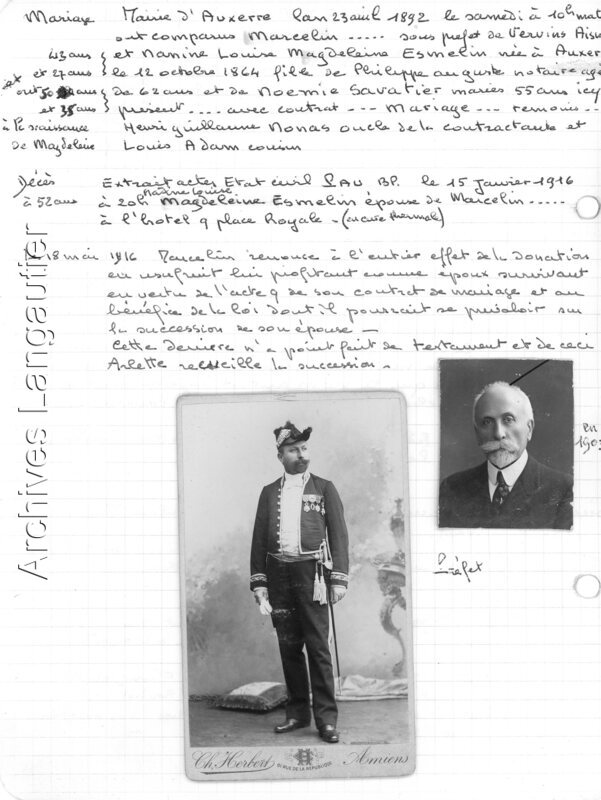 Mariage Mairie d'Auxerre l'an 23 avril 1892 le samedi à 10h mat
ont comparus Marcelin ..... sous prefet de Vervins Aisn
43 ans et Nanine Louise Magdeleine Esmelin née à Auxer
et et 27 ans le 12 octobre 1864 fille de Philippe auguste notaire age
ont 50 ans de 62 ans et de Noemie Savatier mariés 55 ans icy
et 35 ans present .... avec contrat --- Mariage --- remoris --
à la naissance Henri guillaume Monas oncle de la contractante et
de Magdeleine Louis Adam cousin
Décès Extrait actes Etat civil PAU BP. le 15 Janvier 1916
à 52 ans à 20h Nanine Louise Magdeleine Esmelin épouse de Marcelin .....
à l'hotel 9 place Royale - (en cure thermale)
18 mai 1916 Marcelin renonce à l'entier effet de la donation
en usufruit lui profitant comme époux survivant
en vertu de l'acte 9 de son contrat de mariage et au
bénéfice de la loi dont il pourrait se prevaloir sur
la succession de son épouse -
Cette derniere n'a point fait de testament et de ceci
Arlette receuille la succession.
en
190
Préfet
Archives Langautier
Ch. Herbert
RUE DE LA REPUBLIQUE
Amiens